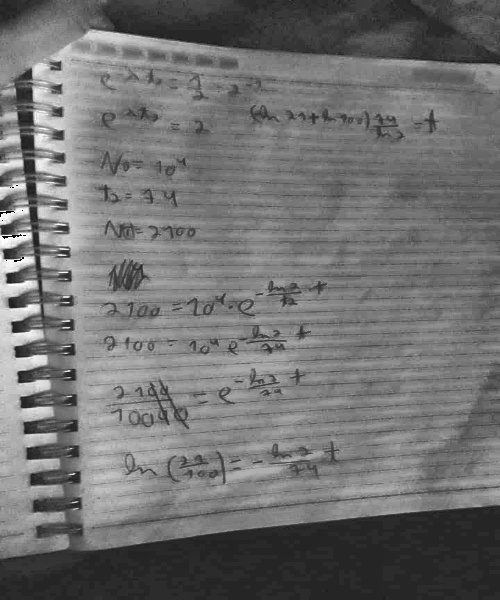 e^{-λt₂} = 1/2 = 2^{-1}
e^{λt₂} = 2 (ln 21 + ln 100) 74/ln 2 = t
N0 = 10^4
t₂ = 74
N(t) = 2100
2100 = 10^4 · e^{-ln 2/t₂ t}
2100 = 10^4 e^{-ln 2/74 t}
2100/10000 = e^{-ln 2/74 t}
ln (21/100) = - ln 2/74 t